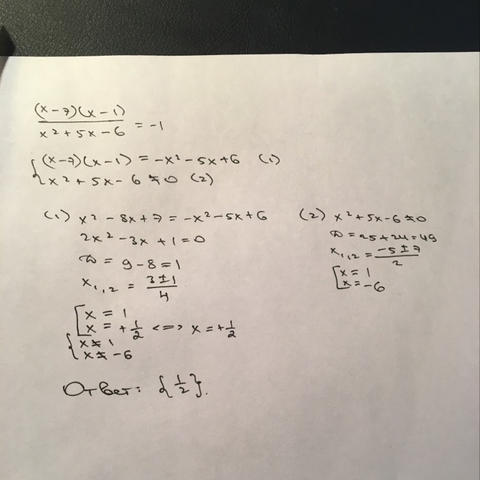 (x-7)(x-1) / x²+5x-6 = -1
{ (x-7)(x-1) = -x²-5x+6 (1)
x²+5x-6 ≠ 0 (2)
(1) x²-8x+7 = -x²-5x+6
2x²-3x+1=0
D = 9-8=1
x₁,₂ = 3±1 / 4
[ x = 1
x = +1/2 <=> x = +1/2
{ x ≠ 1
x ≠ -6
(2) x²+5x-6 ≠ 0
D = 25+24=49
x₁,₂ = -5±7 / 2
[ x = 1
x = -6
Ответ: {1/2}.